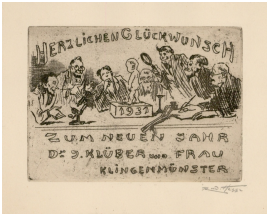 HERZLICHEN GLÜCKWUNSCH
1932
ZUM NEUEN JAHR
DR J. KLÜBER UND FRAU
KLINGENMÜNSTER